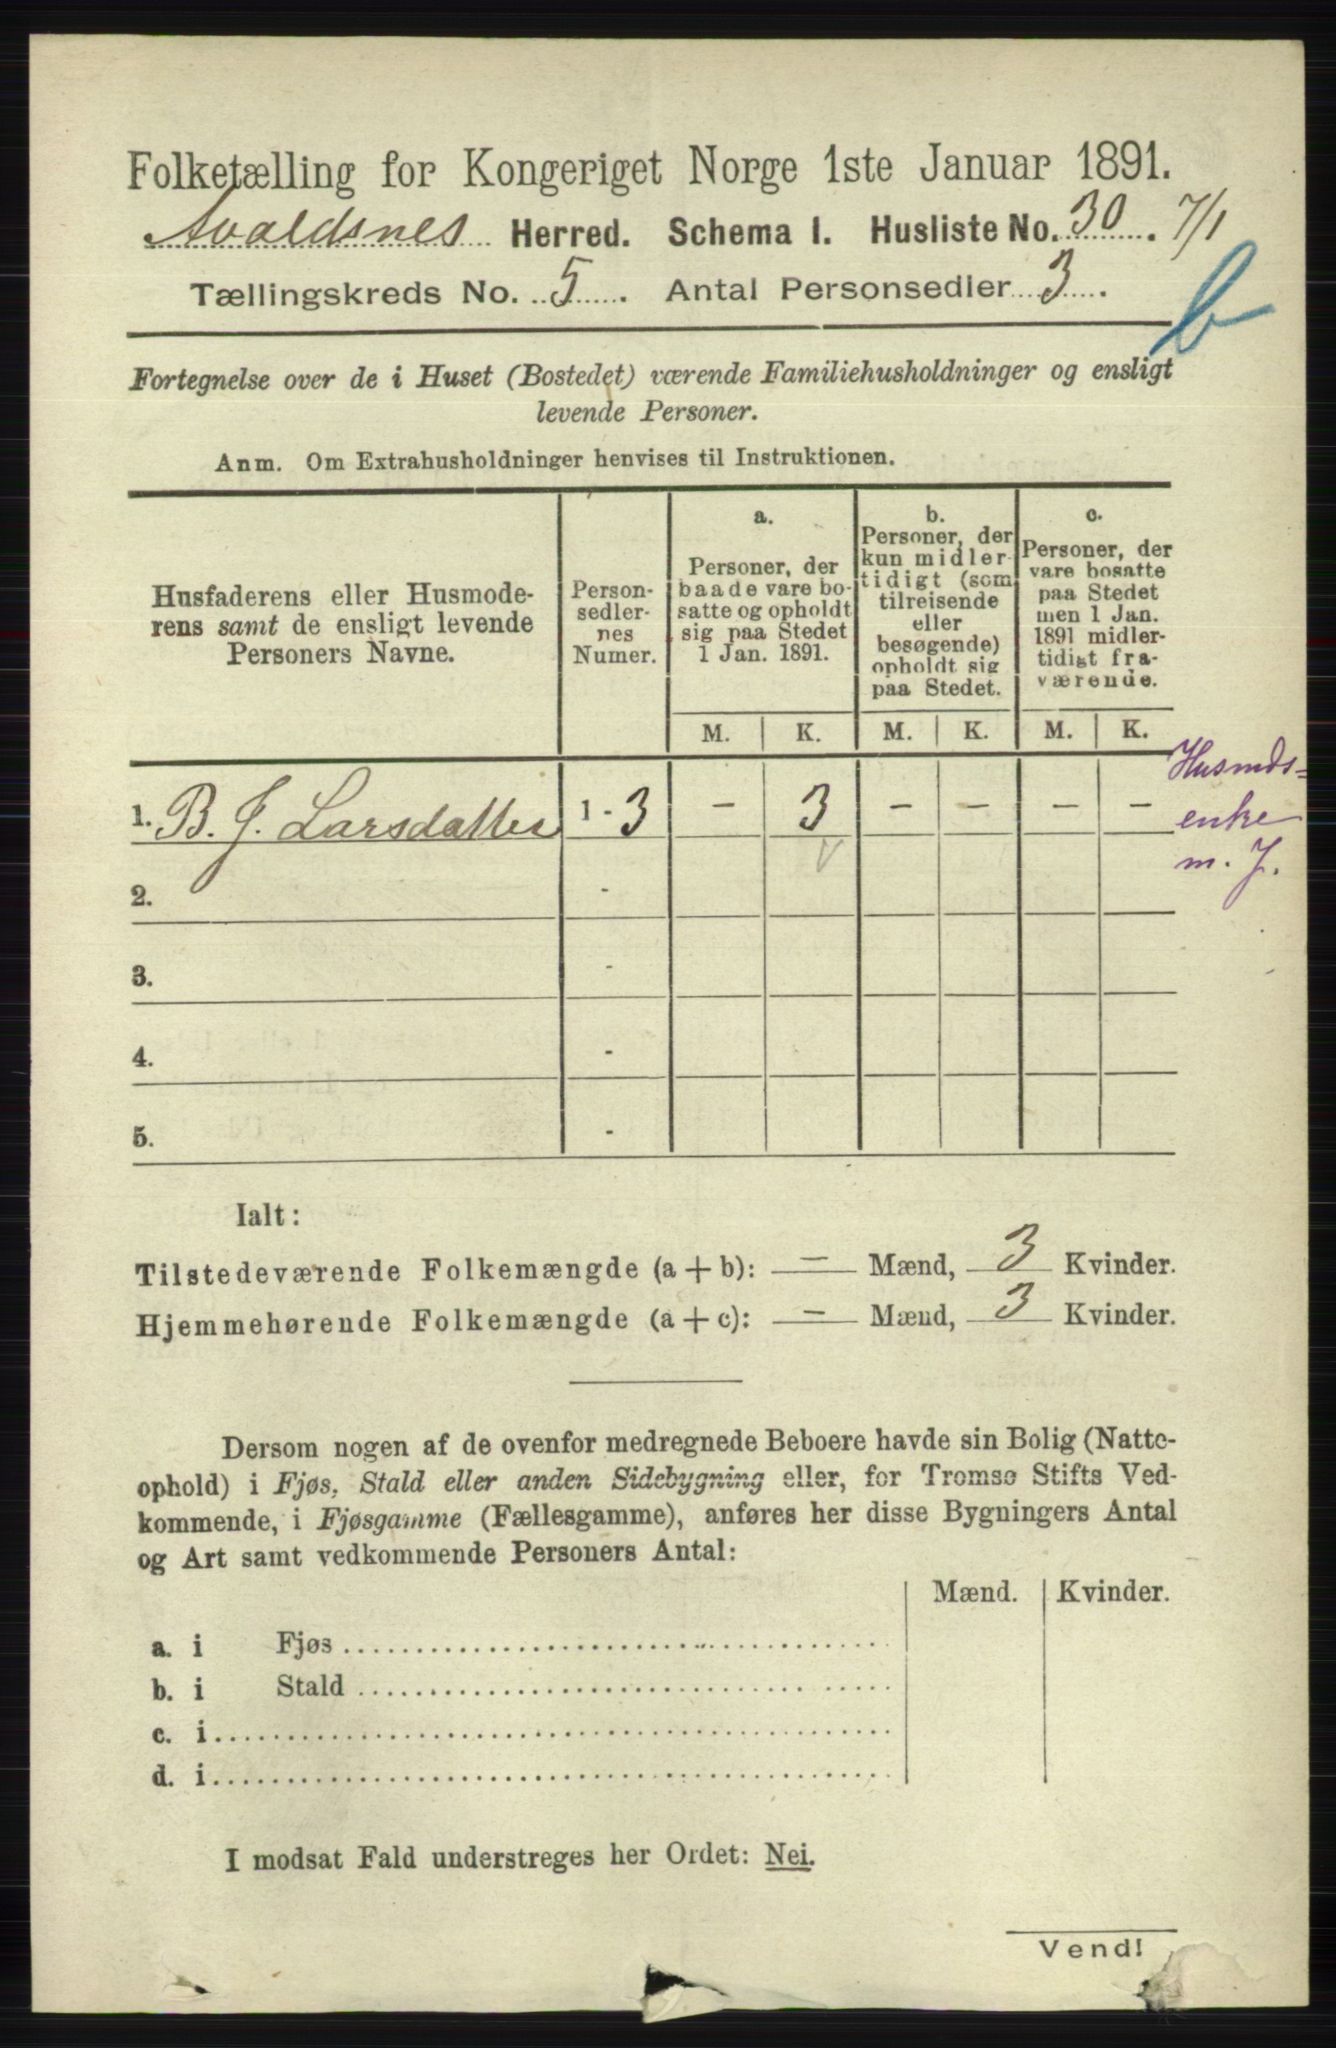 Folketælling for Kongeriget Norge 1ste Januar 1891.
Avaldsnes Herred. Schema I. Husliste No. 30. 7/1
Tællingskreds No. 5. Antal Personsedler 3.
b
Fortegnelse over de i Huset (Bostedet) værende Familiehusholdninger og ensligt
levende Personer.
Anm. Om Extrahusholdninger henvises til Instruktionen.
Husfaderens eller Husmode-
rens samt de ensligt levende
Personers Navne.
Person-
sedler-
nes
Numer.
a.
Personer, der
baade vare bo-
satte og opholdt
sig paa Stedet
1 Jan. 1891.
b.
Personer, der
kun midler-
tidigt (som
tilreisende
eller
besøgende)
opholdt sig
paa Stedet.
c.
Personer, der
vare bosatte
paa Stedet
men 1 Jan.
1891 midler-
tidigt fra-
værende.
M. K. M. K. M. K.
1. B. J. Larsdatter 1 - 3 – 3 – – – –
Husmds-
enke
m. J.
2. -
3. -
4. -
5. -
Ialt:
Tilstedeværende Folkemængde (a + b): – Mænd, 3 Kvinder.
Hjemmehørende Folkemængde (a + c): – Mænd, 3 Kvinder.
Dersom nogen af de ovenfor medregnede Beboere havde sin Bolig (Natte-
ophold) i Fjøs, Stald eller anden Sidebygning eller, for Tromsø Stifts Ved-
kommende, i Fjøsgamme (Fællesgamme), anføres her disse Bygningers Antal
og Art samt vedkommende Personers Antal:
Mænd. Kvinder.
a. i Fjøs
b. i Stald
c. i
d. i
I modsat Fald understreges her Ordet: Nei.
Vend!